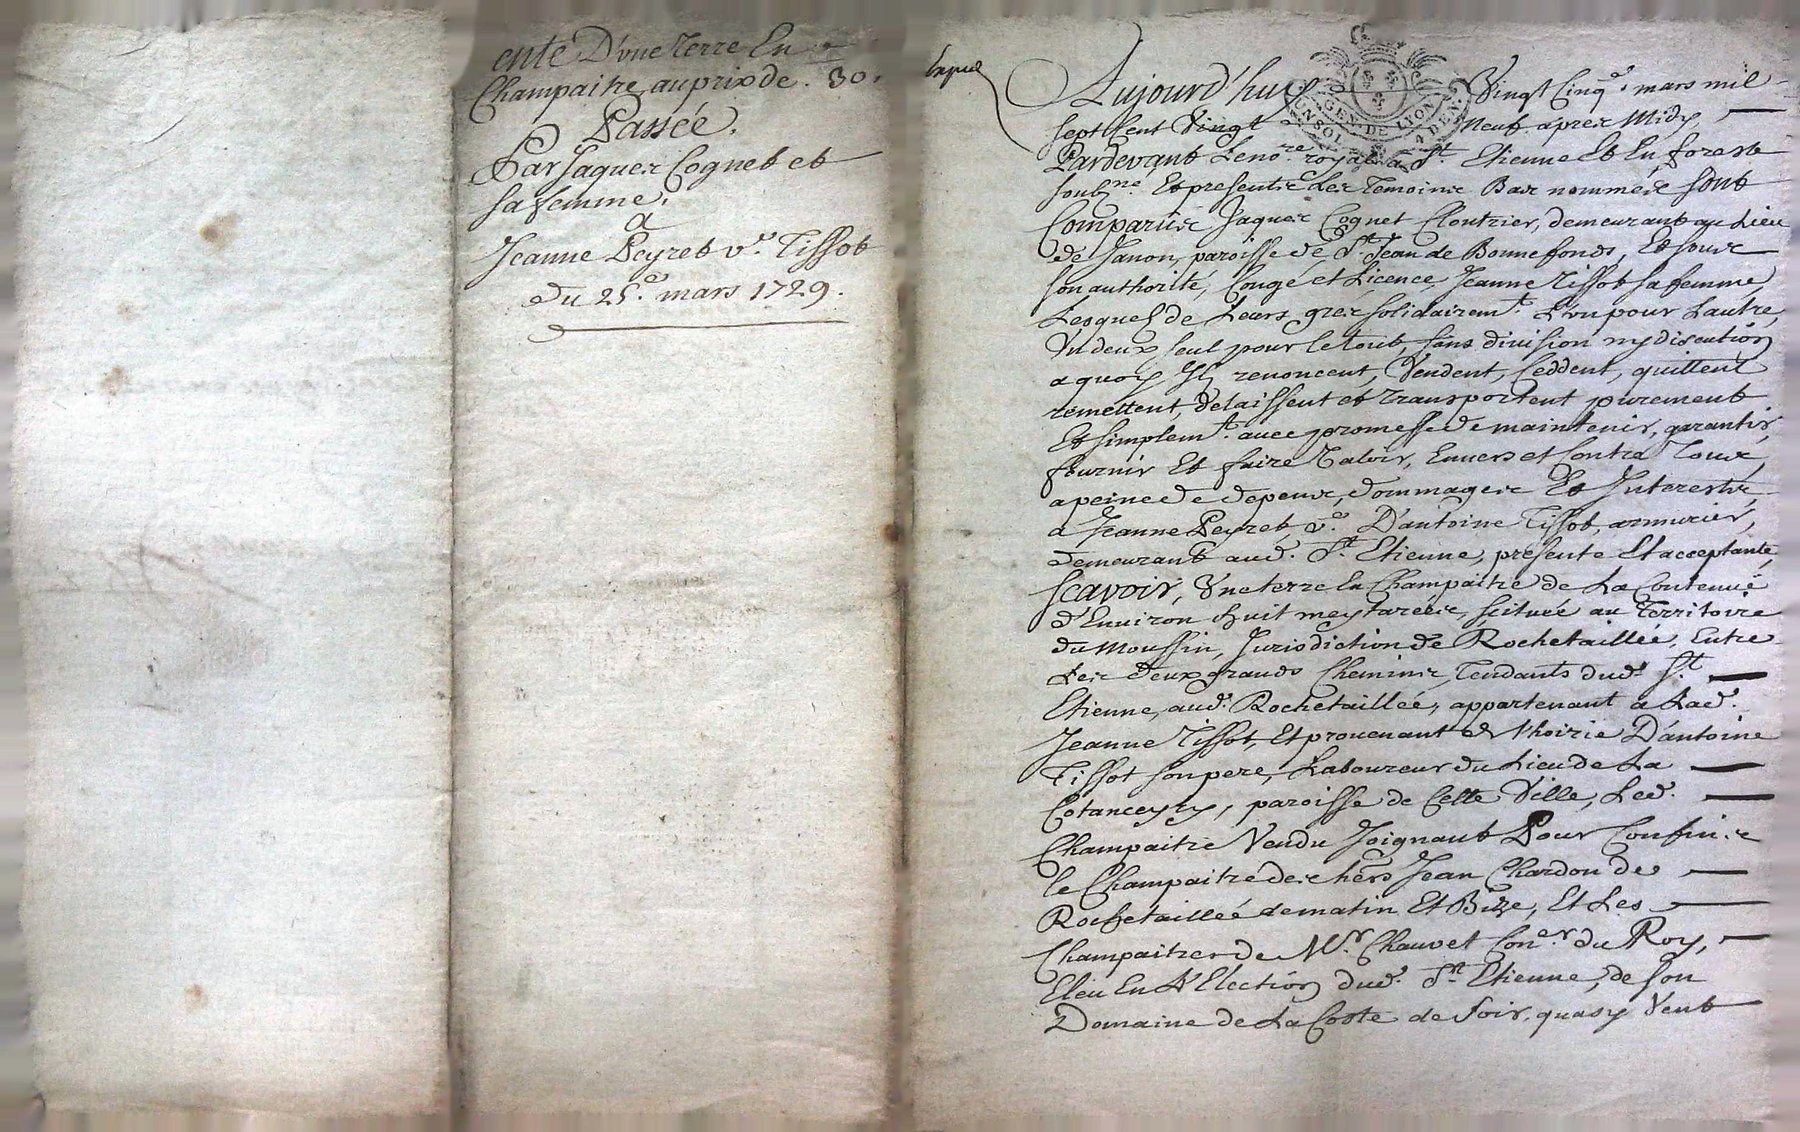 ente D'une Terre En
Champaitre au prix de . 30.
Passée.
Par Jaques Cognet et
sa femme.
a
Jeanne Peyret v.e Tissot
du 25.e mars 1729.
Aujourd'huy Vingt Cinq.e mars mil
sept Cent Vingt Neuf apres Midy
GEN. DE LYON
Pardevant Le no.re royal a S.t Etienne Et En foreste
soub.ne Et presents Les Temoins Bas nommés sont
Comparus Jaques Cognet Cloutrier, demeurant au Lieu
de Janon, paroisse de S.t Jean de Bonnefonds, Et sous
son authorité, Congé et Licence Jeanne Tissot sa femme
Lesquels de Leurs grez solidairem.t L'un pour Lautre,
Un deux seul pour le tout, sans division ny discution
a quoy Ils renoncent, Vendent, Ceddent, quittent
remettent, delaissent et Transportent purement
Et simplem.t avec promesse de maintenir, garantir,
fournir Et faire Valoir, Envers et Contre Tous,
a peine de depens, dommages Et Interests,
a Jeanne Peyret, v.e D'antoine Tissot, armurier,
demeurant aud. S.t Etienne, presente Et acceptante,
Scavoir, Une terre En Champaitre de La Contenue
d'Environ huit meytarées, scituée au Territoire
du Moussin, Jurisdiction de Rochetaillée, Entre
Les deux grands Chemins Tendants dud. S.t
Etienne, aud. Rochetaillée, appartenant a Lad.
Jeanne Tissot, Et provenant de L'hoirie D'antoine
Tissot son pere, Laboureur du Lieu de La
Cotanceyry, paroisse de Cette Ville, Led.
Champaitre Vendu Joignant Pour Confins
le Champaitre des hers Jean Chardon de
Rochetaillée de matin Et Bize, Et Les
Champaitres de M.r Chauvet Con.er du Roy,
Eleu En L'Election dud. S.t Etienne, de son
Domaine de La Coste de soir, quasy Vent